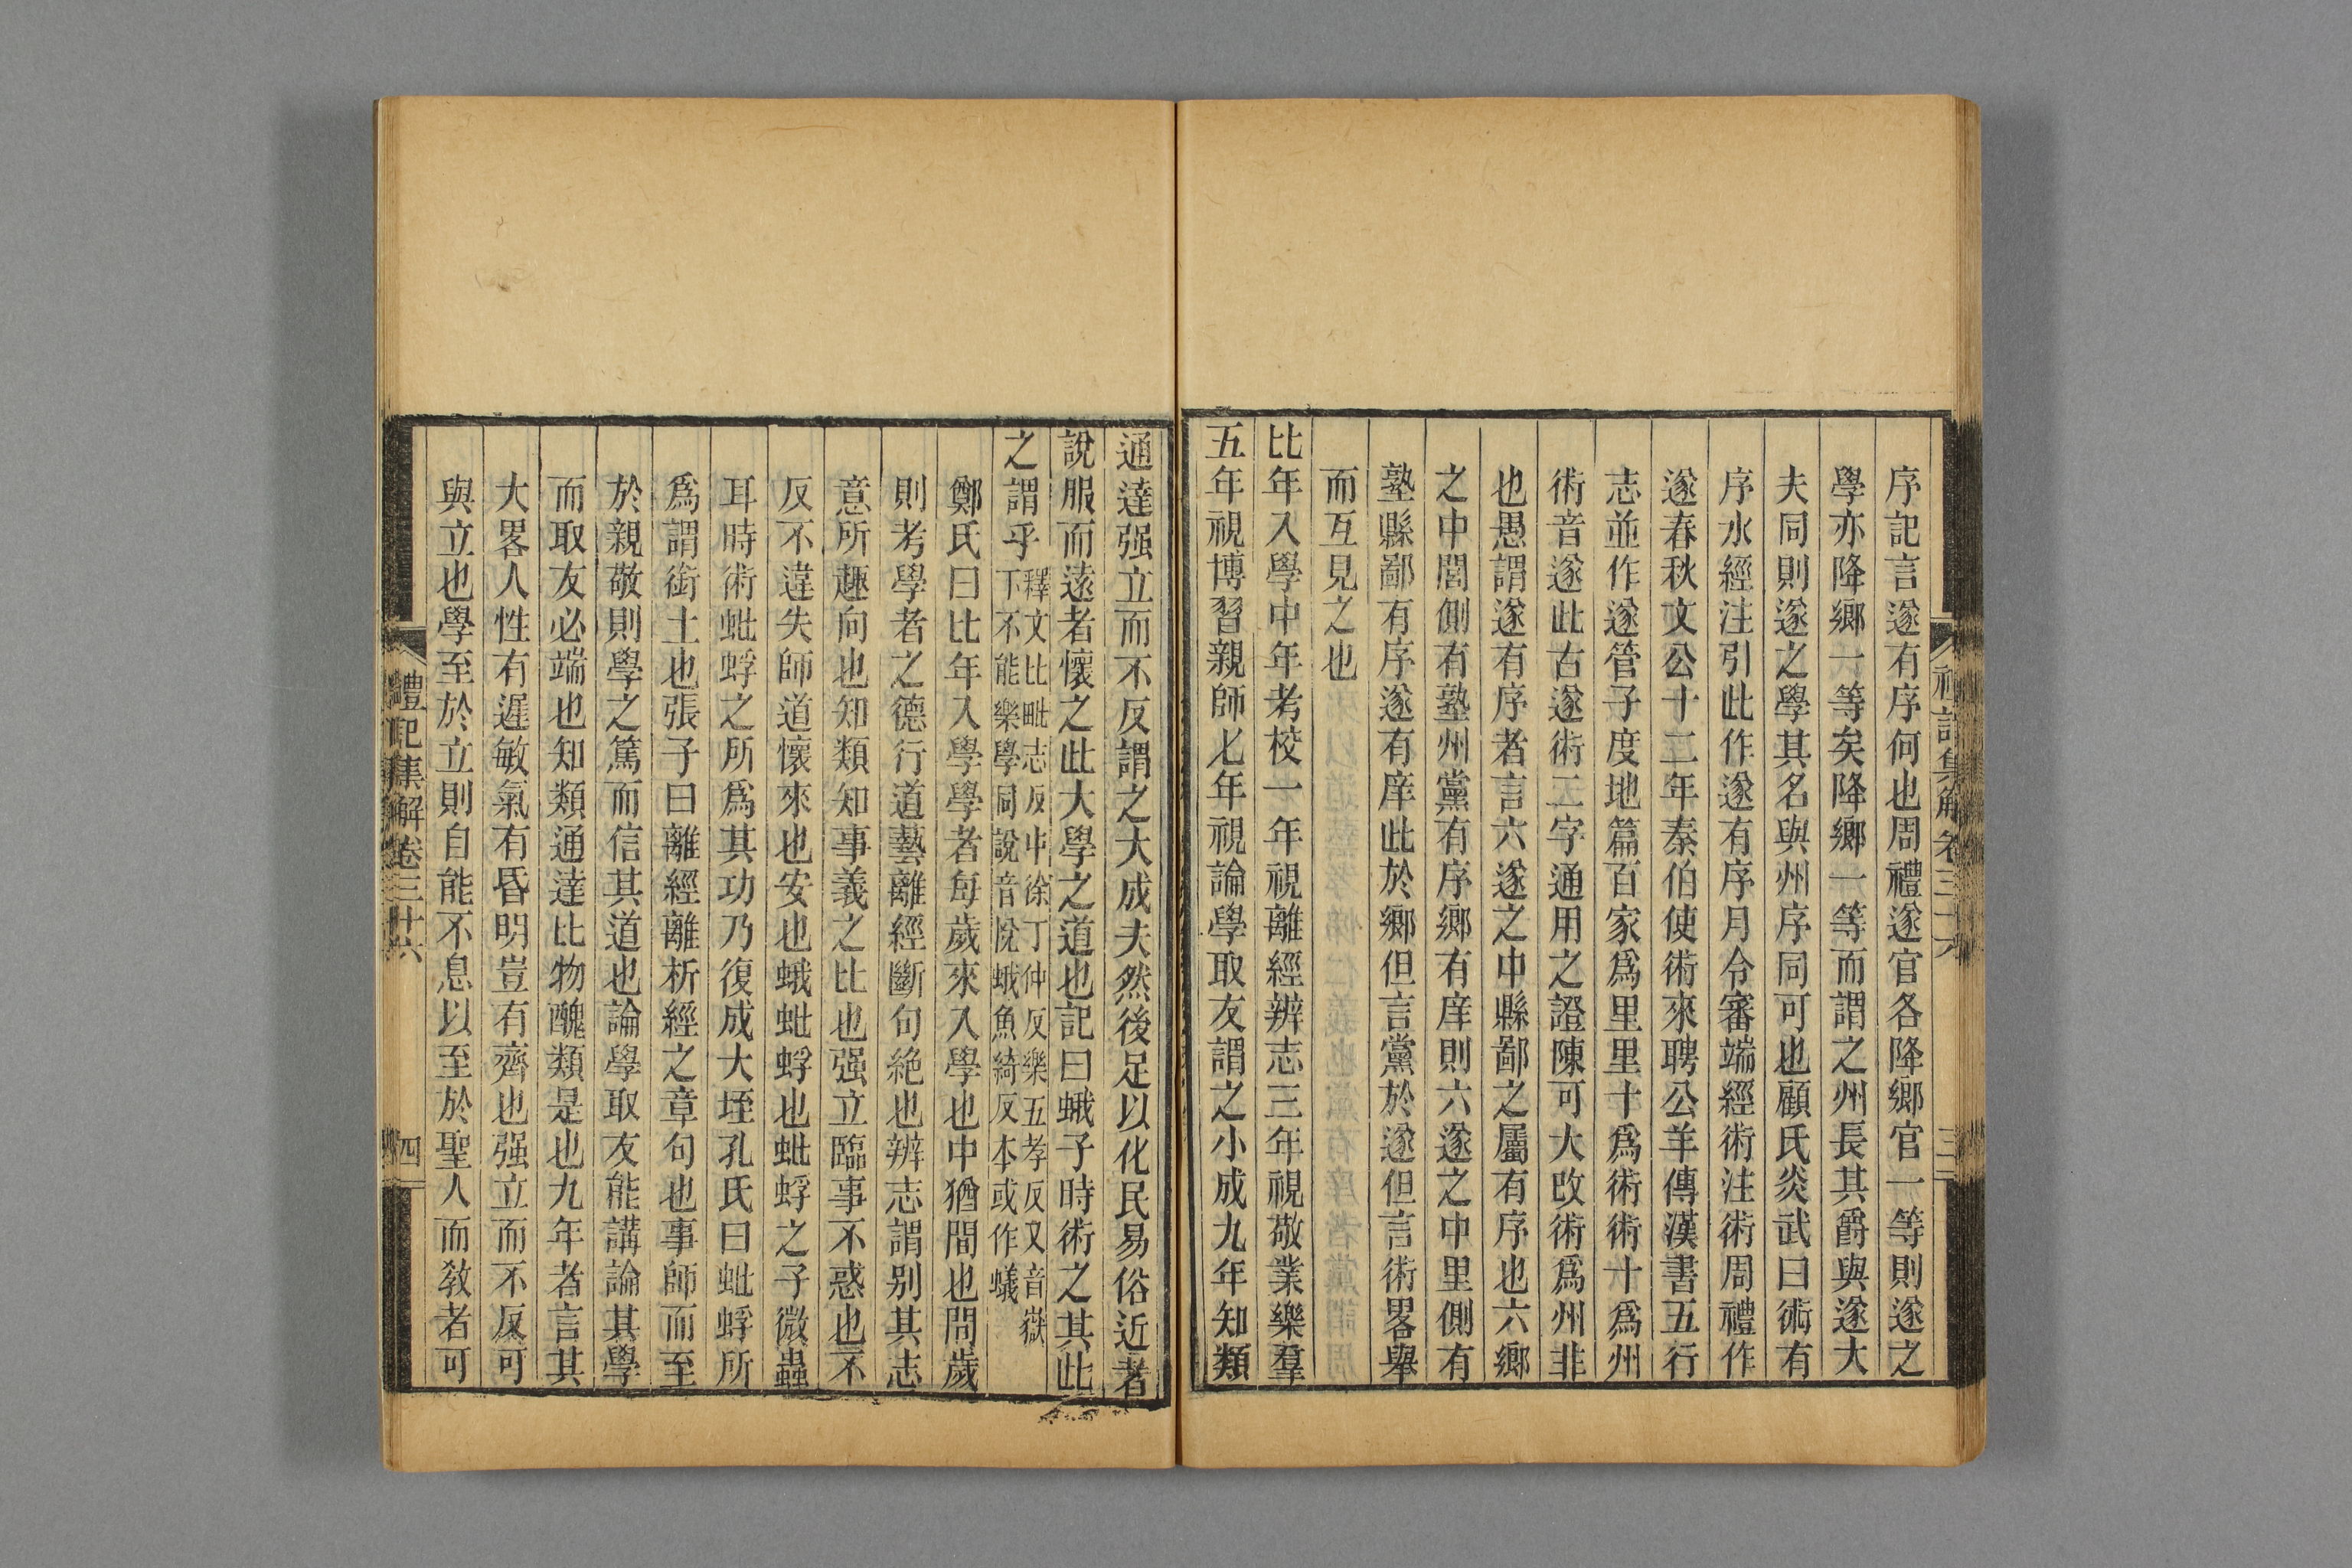 序記言遂有序何也周禮遂官各降鄉官一等則遂之
學亦降鄉一等矣降鄉一等而謂之州長其爵與遂大
夫同則遂之學其名與州序同可也顧氏炎武曰術有
序水經注引此作遂有序月令審端經術注術周禮作
遂春秋文公十二年秦伯使術來聘公羊傳漢書五行
志並作遂管子度地篇百家爲里里十爲術術十爲州
術音遂此古遂術二字通用之證陳可大改術爲州非
也愚謂遂有序者言六遂之中縣鄙之屬有序也六鄉
之中閭側有塾州黨有序鄉有庠則六遂之中里側有
塾縣鄙有序遂有庠此於鄉但言黨於遂但言術畧舉
而互見之也
比年入學中年考校一年視離經辨志三年視敬業樂羣
五年視博習親師七年視論學取友謂之小成九年知類
通達强立而不反謂之大成夫然後足以化民易俗近者
說服而遠者懷之此大學之道也記曰蛾子時術之其此
之謂乎釋文比毗志反中徐丁仲反樂五孝反又音嶽
下不能樂學同說音悅蛾魚綺反本或作蟻
鄭氏曰比年入學學者每歲來入學也中猶間也間歲
則考學者之德行道藝離經斷句絶也辨志謂别其志
意所趣向也知類知事義之比也强立臨事不惑也不
反不違失師道懷來也安也蛾蚍蜉也蚍蜉之子微蟲
耳時術蚍蜉之所爲其功乃復成大垤孔氏曰蚍蜉所
爲謂銜土也張子曰離經離析經之章句也事師而至
於親敬則學之篤而信其道也論學取友能講論其學
而取友必端也知類通達比物醜類是也九年者言其
大畧人性有遲敏氣有昏明豈有齊也强立而不反可
與立也學至於立則自能不息以至於聖人而敎者可
禮記集解卷三十六
三
禮記集解卷三十六
四